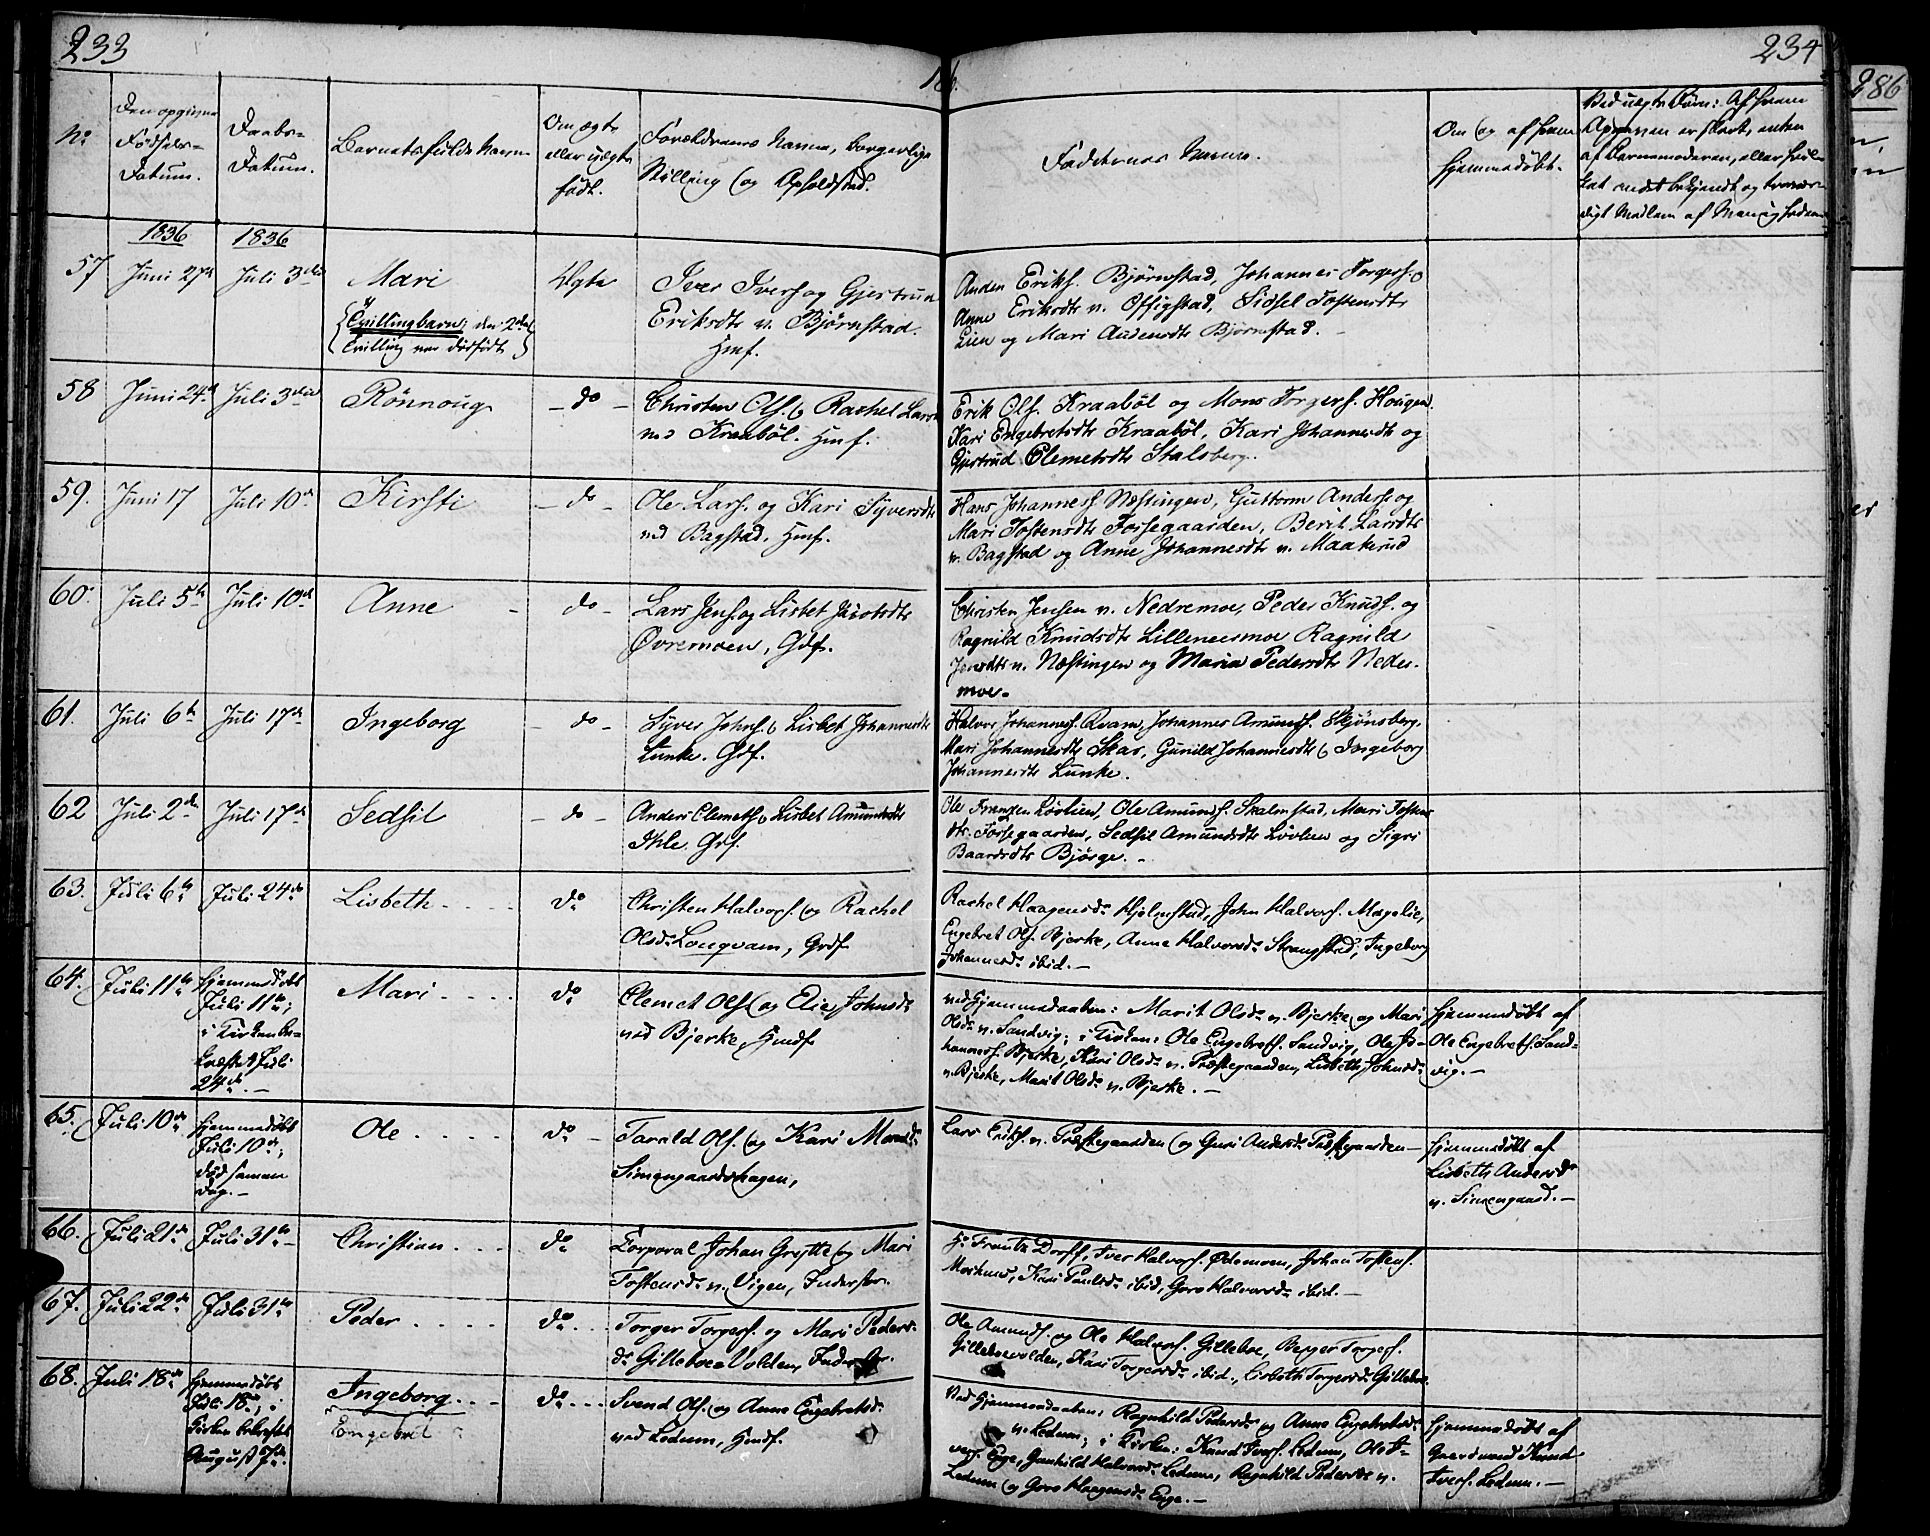 233
234
186.
286
No
Den opgivne
Fødsels-
Datum.
Daabs-
Datum.
Barnets fulde Navn
Om ægte
eller uægte
født.
Forældrenes Navne, borgerlige
Stilling og Opholdsted.
Faddernes Navne.
Om og af hvem
hjemmedøbt.
Ved uægte Børn: Af hvem
er skeet, enten
af Barnemoderen, eller
andet bekjendt og
digt Medlem af Menigheden
1836
1836
57
Juni 27d
Juli 3die
Mari
Tvillingbarn, den 2den
Tvilling var dødfødt
Ægte
Iver Ivers. og Gjertrud
Eriksdtr v. Bjørnstad.
Hmf.
Anden Eriks. Bjørnstad, Johannes Torgers. o
Anne Eriksdtr v. Offigstad, Sidsel Tostensdtr
Lien og Mari Audensdtr Bjørnstad.
58
Juni 24d
Juli 3die
Rönnoug
- do -
Christen Ols. & Rachel Larsd
ved Kraaböl. Hmf.
Erik Ols. Kraaböl og Mons Torgers. Haugen
Kari Engebretsdtr Kraaböl, Kari Johannesdtr og
Gjertrud Clemetsdtr Stalsberg.
59.
Juni 17
Juli 10d
Kirsti
- do -
Ole Lars. og Kari Syversdtr
ved Bagstad. Hmf.
Hans Johannesf. Næstingen, Guttorm Anders. og
Mari Tostensdtr Forsegaarden, Berit Larsdtr
v. Bagstad og Anne Johannesdtr v. Maakerud
60.
Juli 5te
Juli 10d
Anne
do -
Lars Jens. og Lisbet Jacobsdtr
Øvremoen, Gdf.
Christen Jensen v. Nedremoe, Peder Knuds. og
Ragnild Knudsdtr Lilleneermoe Ragnild
Jensdtr v. Næstingen og Maria Pedersdtr Neder-
moe.
61.
Juli 6te
Juli 17de
Ingeborg
- do -
Syver Johns. & Lisbet Johannesdtr
Lunke. Gdf.
Halvor Johannesf. Kvam, Johannes Amunds. Skjönsberg,
Mari Johannesdtr Skar, Gunild Johannesdtr & Ingeborg
Johannesdtr Lunke.
62
Juli 2den
Juli 17de
Sedsil
- do -
Anders Clemets. & Lisbet Amundsdtr
Ihle. Gdf.
Ole Frandsen Lövlien, Ole Amunds. Skalmstad, Mari Tostens
dtr Forsegaarden, Sedsil Amundsdtr Lövlien og Sigri
Baardsdtr Bjørge.
63.
Juli 6te
Juli 24de
Lisbeth . . . .
do
Christen Halvors. og Rachel
Olsdr Longvam, Grdf.
Rachel Haagensdr Hjelmstad, John Halvors. Magelie,
Engebret Ols. Bjerke, Anne Halvorsdr Strangstad, Ingeborg
Johannesdr ibid. -
64.
Juli 11te
hjemmedöbt
Juli 11te;
i Kirken be-
kræftet Juli
24de -
Mari . . . .
do
Clemet Ols. og Elie Johnsdr
ved Bjerke, Hmdf.
ved Hjemmedaaben: Marit Olsdr v. Bjerke og Mari
Olsdr v. Sandvig; i Kirken: Ole Engebrets. Sandvig, Ole Jo-
hannesf. Bjerke, Kari Olsdr v. Præstegaarden, Lisbeth Johnsdr
v. Bjerke, Marit Olsdr v. Bjerke. -
hjemmedöbt af
Ole Engebrets. Sand-
vig. -
65.
Juli 10de
hjemmedöbt
Juli 10de;
död samme
Dag. -
Ole . . . .
do -
Tarald Ols. og Kari
Simengaardshagen,
Lars Eriks. v. Præstegaarden og Guri Andersdr Præstegaarden -
hjemmedöbt af
Lisbeth Andersdr
v. Simengaard. -
66.
Juli 21de
Juli 31te
Christian . . .
do
Corporal Johan Grytte og Mari
Tostensdr v. Vigen, Inderster.
Hr Frantz Dorff, Iver Halvors. Ødemoen, Johan Tostens.
Moshuus, Kari Paulsdr ibid, Goro Halvorsdr ibid. -
67.
Juli 22de
Juli 31te
Peder . . . .
do . . .
Torger Torgers. og Mari Peders-
dr Gilleboe Volden, Inderster.
Ole Amunds. og Ole Halvors. Gilleboe, Torgers.
Gilleboevolden, Kari Torgersdr ibid., Lisbeth Torgersdr Gilleboe.
68.
Juli 18de
hjemmedöbt
Juli 18de; i
Kirken bekræftet
August 7de
Ingeborg . . .
Engebret
do . . .
Svend Ols. og Anne Engebretsdr
ved Ledum, Hmdf.
Ved Hjemmedaaben: Ragnhild Pedersdr og Anne Engebretsdr
v. Ledum; i Kirken: Knud Ivers. Ledum, Ole I-
vers. Enge, Gunhild Halvorsdr Ledum, Ragnhild Pedersdr v.
Ledum og Goro Haagensdr Enge. -
hjemmedöbt af
Gaardmand Knud
Ivers. Ledum. -